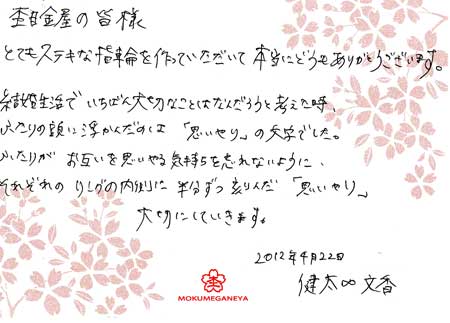 杢目金屋の皆様
とてもステキな指輪を作っていただいて本当にどうもありがとうございます。
結婚生活でいちばん大切なことはなんだろうと考えた時、
ふたりの頭に浮かんだのは「思いやり」の文字でした。
ふたりがお互いを思いやる気持ちを忘れないように、
それぞれのリングの内側に半分ずつ刻んだ「思いやり」
大切にしていきます。
2012年4月22日
健太∞文香
MOKUMEGANEYA